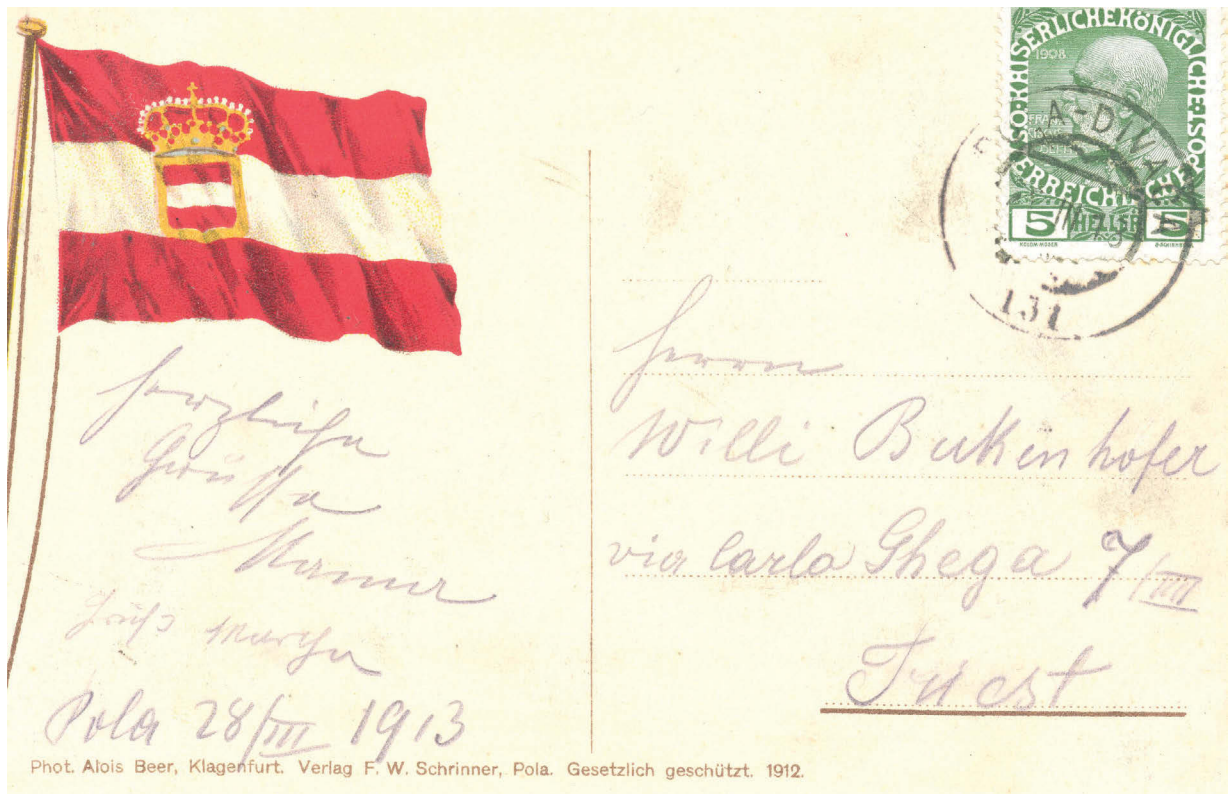 KAISERLICHE KÖNIGLICHE ÖSTERREICHISCHE POST
1908
5 HELLER 5
KOLOM MOSER
131
Herzliche
Grüsse
Pola 28/III 1913
Herrn
Willi
via Carlo Ghega 7/III
Triest
Phot. Alois Beer, Klagenfurt. Verlag F. W. Schrinner, Pola. Gesetzlich geschützt. 1912.